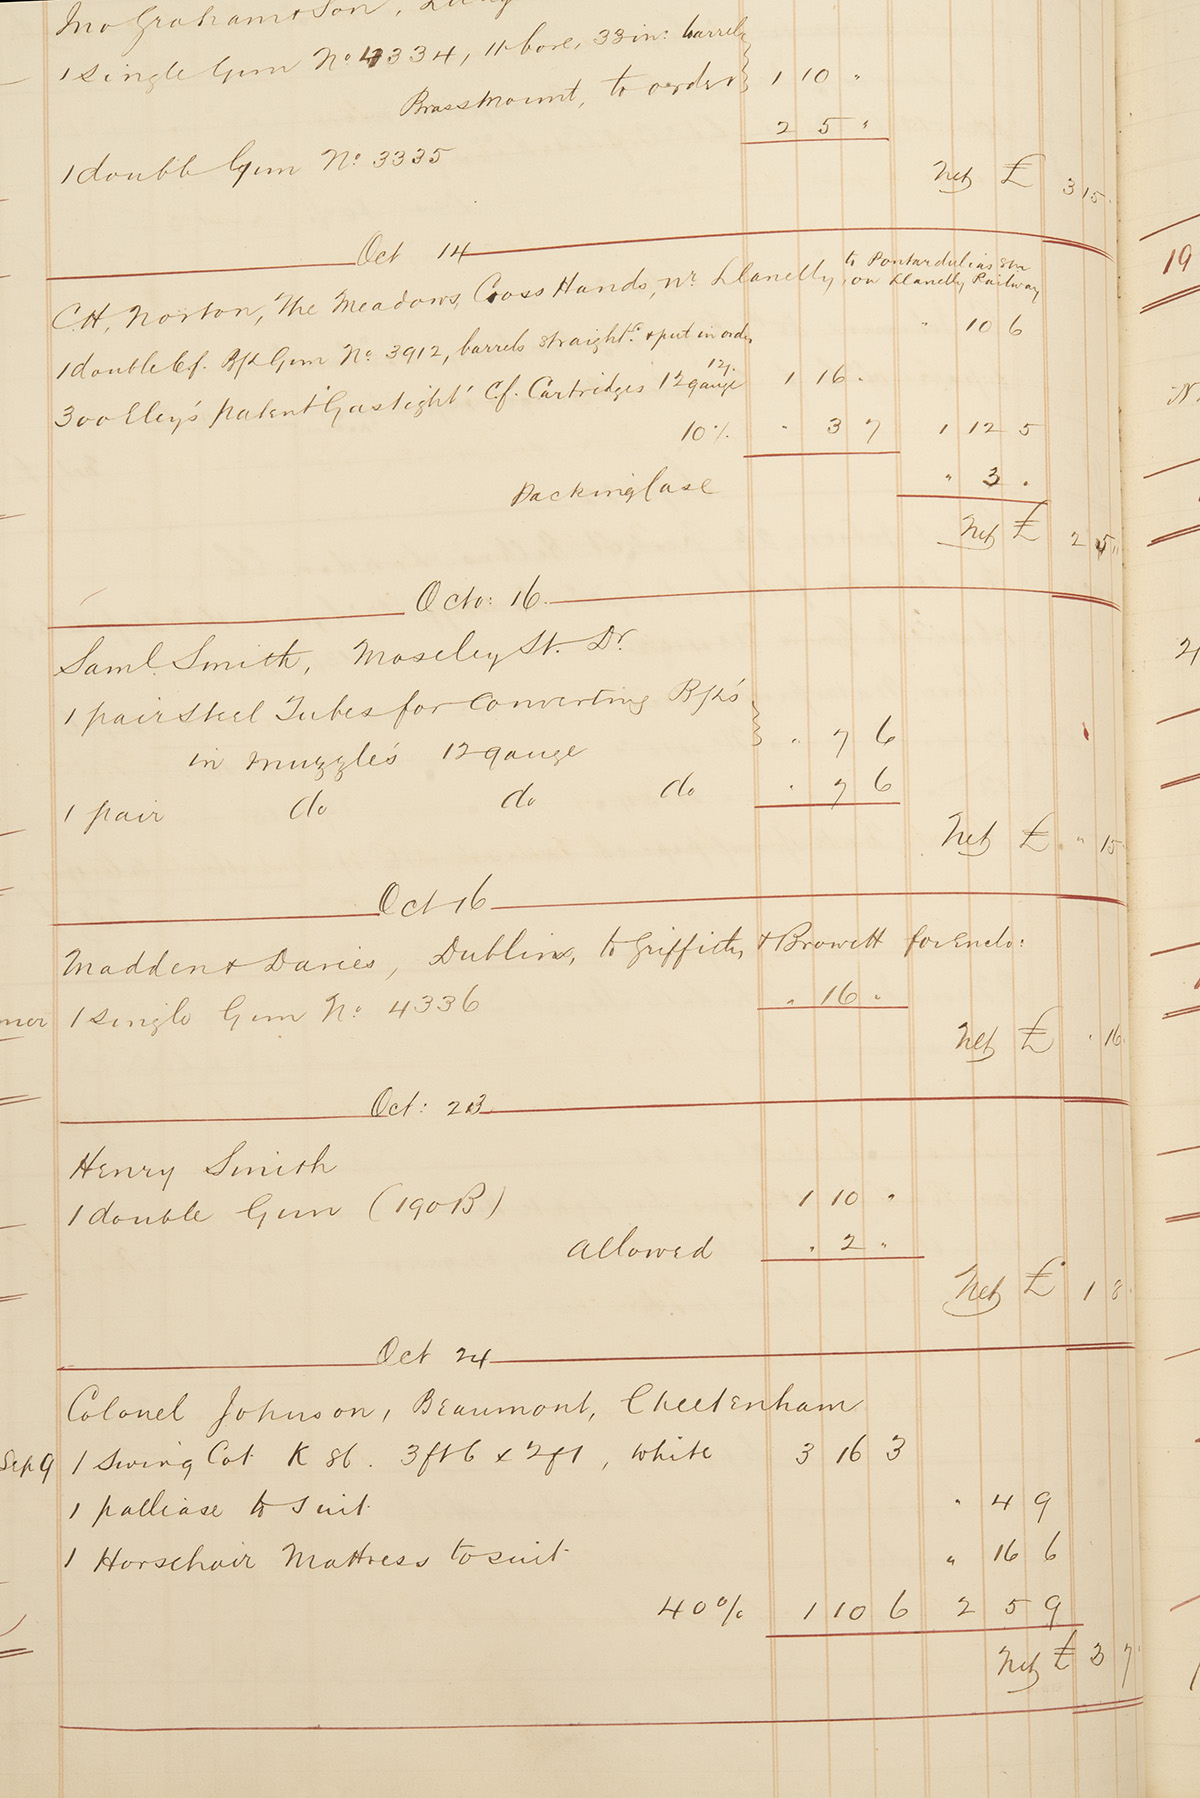 Jno Graham & Son,
1 Single Gun No 4334, 11 bore, 33 in: barrels
Brass Mount, to order } 1 10 "
2 5 "
1 double Gun No. 3335
Net £ 3 15
Oct 14
C.H. Norton, The Meadows, Cross Hands, nr Llanelly, to Pontardulais Stn
on Llanelly Railway
1 double Cf. B/L Gun No. 3912, barrels straightd. & put in order " 10 6
300 Eley's patent 'Gastight' Cf. Cartridges 12 gauge 12/. 1 16 "
10 % " 3 7 1 12 5
Packing Case " 3 "
Net £ 2 5 "
Octo: 16.
Saml. Smith, Moseley St. Dr.
1 pair Steel Tubes for Converting B/L's
in muzzle's 12 gauge } " 7 6
1 pair do do do " 7 6
Net £ " 15
Oct 16
Madden & Davies, Dublin, to Griffiths & Browett for Enclo:
1 Single Gun No. 4336 " 16 "
Net £ " 16
Oct: 23
Henry Smith
1 double Gun (190B) 1 10 "
Allowed " 2 "
Net £ 1 8
Oct 24
Colonel Johnson, Beaumont, Cheltenham
Sep 9 1 Swing Cot K 86. 3ft 6 x 2ft, White 3 16 3
1 palliase to Suit " 4 9
1 Horsehair Mattress to suit " 16 6
40% 1 10 6 2 5 9
Net £ 3 7
19